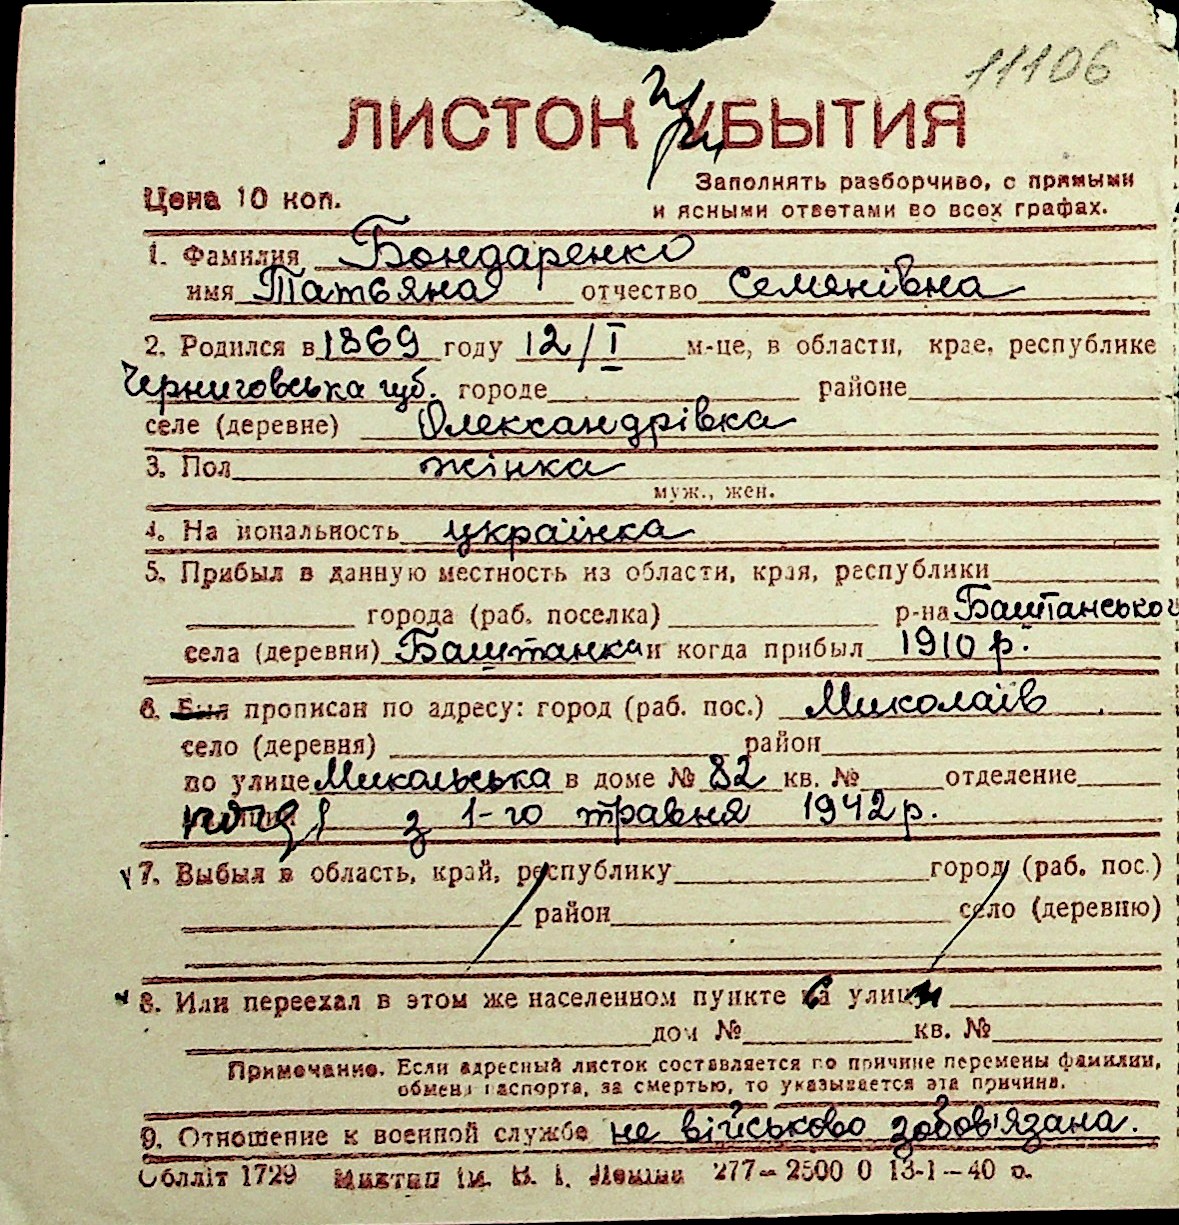 11106
ЛИСТОК при УБЫТИЯ
Цена 10 коп.
Заполнять разборчиво, с прямыми
и ясными ответами во всех графах.
1. Фамилия Бондаренко
имя Татьяна отчество Семенівна
2. Родился в 1869 году 12/I м-це, в области, крае, республике
Черниговська губ. городе районе
селе (деревне) Олександрівка
3. Пол жінка
муж., жен.
4. На иональность українка
5. Прибыл в данную местность из области, края, республики
города (раб. поселка) р-на Баштанського
села (деревни) Баштанка и когда прибыл 1910 р.
6. Был прописан по адресу: город (раб. пос.) Миколаїв
село (деревня) район
по улице Микольська в доме № 82 кв. № отделение
з 1-го травня 1942 р.
7. Выбыл в область, край, республику город (раб. пос.)
район село (деревню)
8. Или переехал в этом же населенном пункте улиц
дом № кв. №
Примечание. Если адресный листок составляется по причине перемены фамилии,
обмена паспорта, за смертью, то указывается эта причина.
9. Отношение к военной службе не військово зобов'язана.
Облліт 1729 ім. В. І. Леніна 277—2500 0 13-1—40 о.